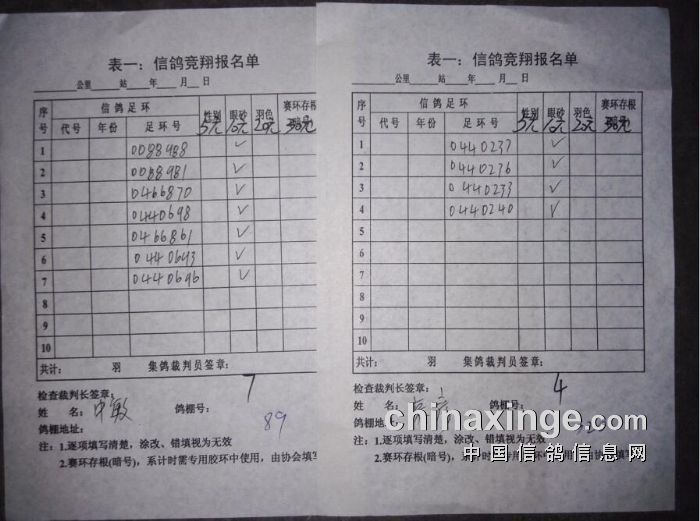 表一：信鸽竞翔报名单
公里____站____年____月__日
序号 信鸽足环 性别 眼砂 羽色 赛环存根
代号 年份 足环号 5元 10元 20元
1 0088988 ✓
2 0088981 ✓
3 0466870 ✓
4 0440698 ✓
5 0466861 ✓
6 0440643 ✓
7 0440696 ✓
8
9
10
共计： 羽 集鸽裁判员签章：
检查裁判长签章： 7
姓 名： 敏 鸽棚号：
鸽棚地址： 89
注：1.逐项填写清楚，涂改、错填视为无效
2.赛环存根(暗号)，系计时需专用胶环中使用，由协会填写
表一：信鸽竞翔报名单
公里____站____年____月__日
序号 信鸽足环 性别 眼砂 羽色 赛环存根
代号 年份 足环号 5元 10元 20元
1 0440237 ✓
2 0440236 ✓
3 0440233 ✓
4 0440240 ✓
5
6
7
8
9
10
共计： 羽 集鸽裁判员签章：
检查裁判长签章： 4
姓 名： 鸽棚号：
鸽棚地址：
注：1.逐项填写清楚，涂改、错填视为无效
2.赛环存根(暗号)，系计时需专用胶环中使用，由协会填写
chinaxinge.com
中国信鸽信息网